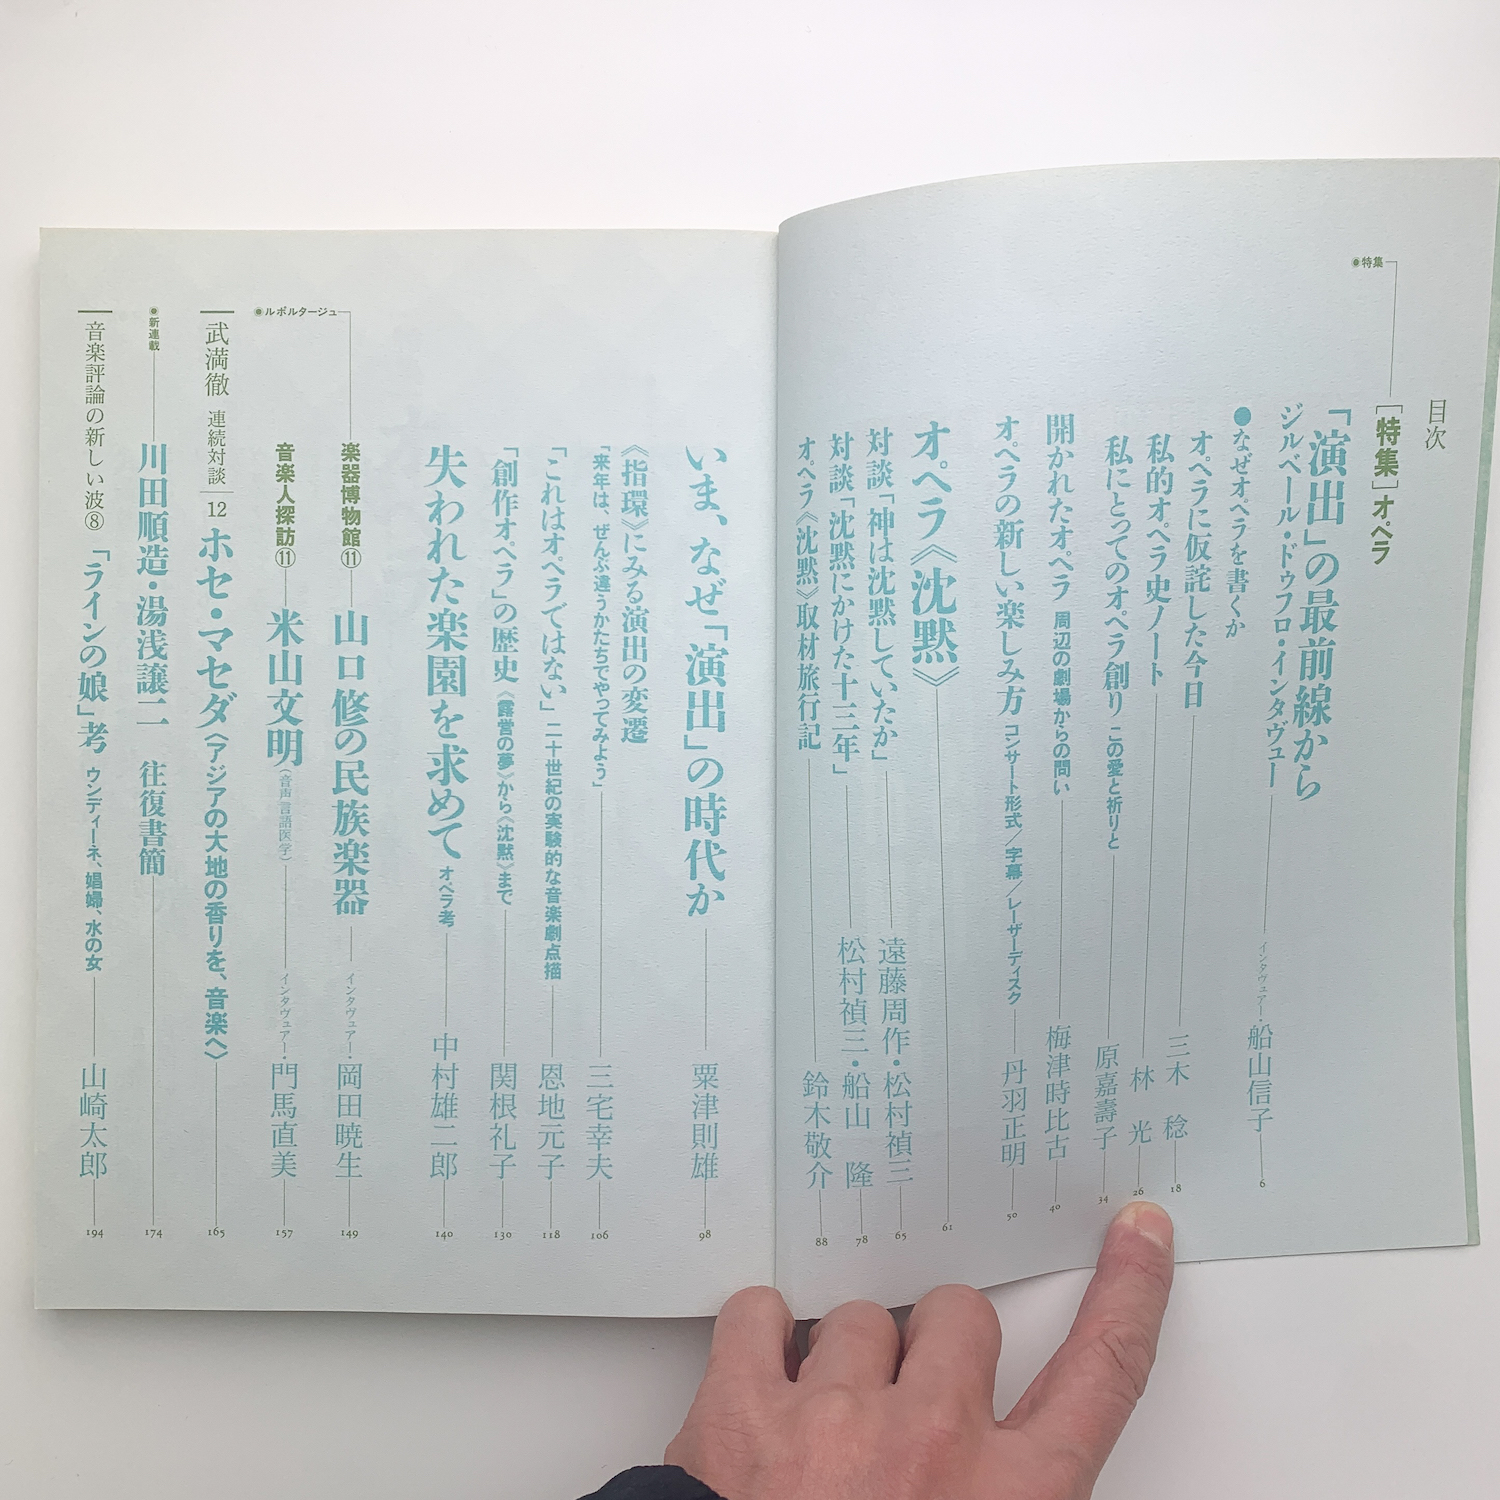 目次
●特集
［特集］オペラ
「演出」の最前線から
ジルベール・ドゥフロ・インタヴュー インタヴュアー・船山信子 6
●なぜオペラを書くか
オペラに仮詫した今日 三木 稔 18
私的オペラ史ノート 林 光 26
私にとってのオペラ創り この愛と祈りと 原嘉壽子 34
開かれたオペラ 周辺の劇場からの問い 梅津時比古 40
オペラの新しい楽しみ方 コンサート形式／字幕／レーザーディスク 丹羽正明 50
オペラ《沈黙》 61
対談「神は沈黙していたか」 遠藤周作・松村禎三 65
対談「沈黙にかけた十三年」 松村禎三・船山 隆 78
オペラ《沈黙》取材旅行記 鈴木敬介 88
いま、なぜ「演出」の時代か 粟津則雄 98
《指環》にみる演出の変遷
「来年は、ぜんぶ違うかたちでやってみよう」 三宅幸夫 106
「これはオペラではない」 二十世紀の実験的な音楽劇点描 恩地元子 118
「創作オペラ」の歴史 《露営の夢》から《沈黙》まで 関根礼子 130
失われた楽園を求めて オペラ考 中村雄二郎 140
●ルポルタージュ
楽器博物館⑪ 山口修の民族楽器 インタヴュアー・岡田暁生 149
音楽人探訪⑪ 米山文明（音声言語医学） インタヴュアー・門馬直美 157
武満徹 連続対談 12 ホセ・マセダ〈アジアの大地の香りを、音楽へ〉 165
●新連載
川田順造・湯浅譲二 往復書簡 174
音楽評論の新しい波⑧ 「ラインの娘」考 ウンディーネ、娼婦、水の女 山崎太郎 194